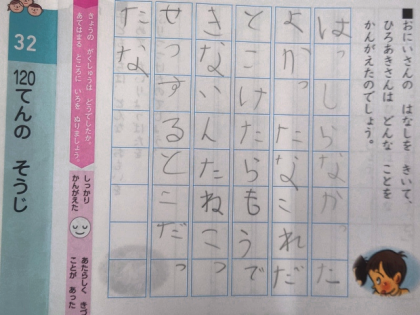 ■おにいさんの はなしを きいて、
ひろあきさんは どんな ことを
かんがえたのでしょう。
はっしらなかった
よかったなこれだ
とこけたらもうで
きないんたねこっ
せっするとこだっ
たな
きょうの がくしゅうは どうでしたか。
あてはまる ところに いろを ぬりましょう。
しっかり
かんがえた
あたらしく きづ
ことが あった
32
120てんの そうじ